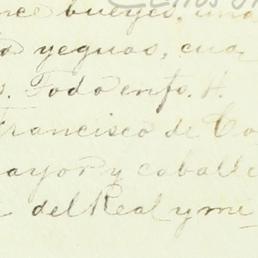 bueyes, una
yeguas, cua
Todo
Francisco de Co
mayor y caball
del Real y me